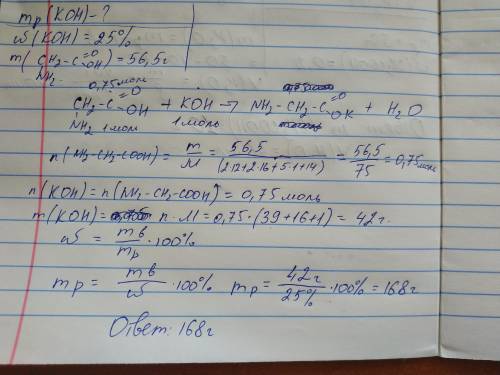 mр(KOH) - ?
ω(KOH) = 25%
m(CH₂-C=O OH) = 56,5г
NH₂
0,75 моль
CH₂-C=O OH + KOH → NH₂-CH₂-C=O OK + H₂O
NH₂ 1 моль 1 моль
n(NH₂-CH₂-COOH) = m/M = 56,5/(2·12+2·16+5·1+14) = 56,5/75 = 0,75 моль
n(KOH) = n(NH₂-CH₂-COOH) = 0,75 моль
m(KOH) = n·M = 0,75·(39+16+1) = 42г.
ω = mв/mр · 100%
mр = mв/ω · 100% mр = 42г/25% · 100% = 168г
Ответ: 168г